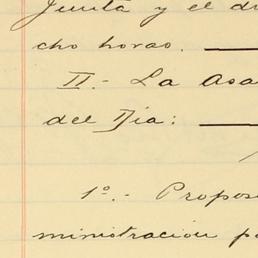 Junta y el di
cho horas.
II.- La Asa
del Día:
1º.- Propos
ministración pa